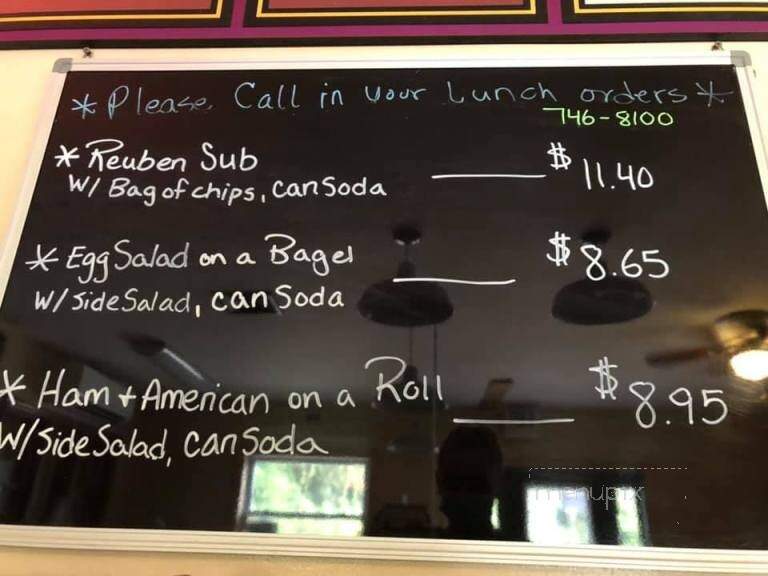 * Please Call in your Lunch orders *
746-8100
* Reuben Sub ______ $ 11.40
W/ Bag of chips, can Soda
* Egg Salad on a Bagel ______ $ 8.65
W/ Side Salad, can Soda
* Ham + American on a Roll ______ $ 8.95
W/ Side Salad, can Soda
menupix